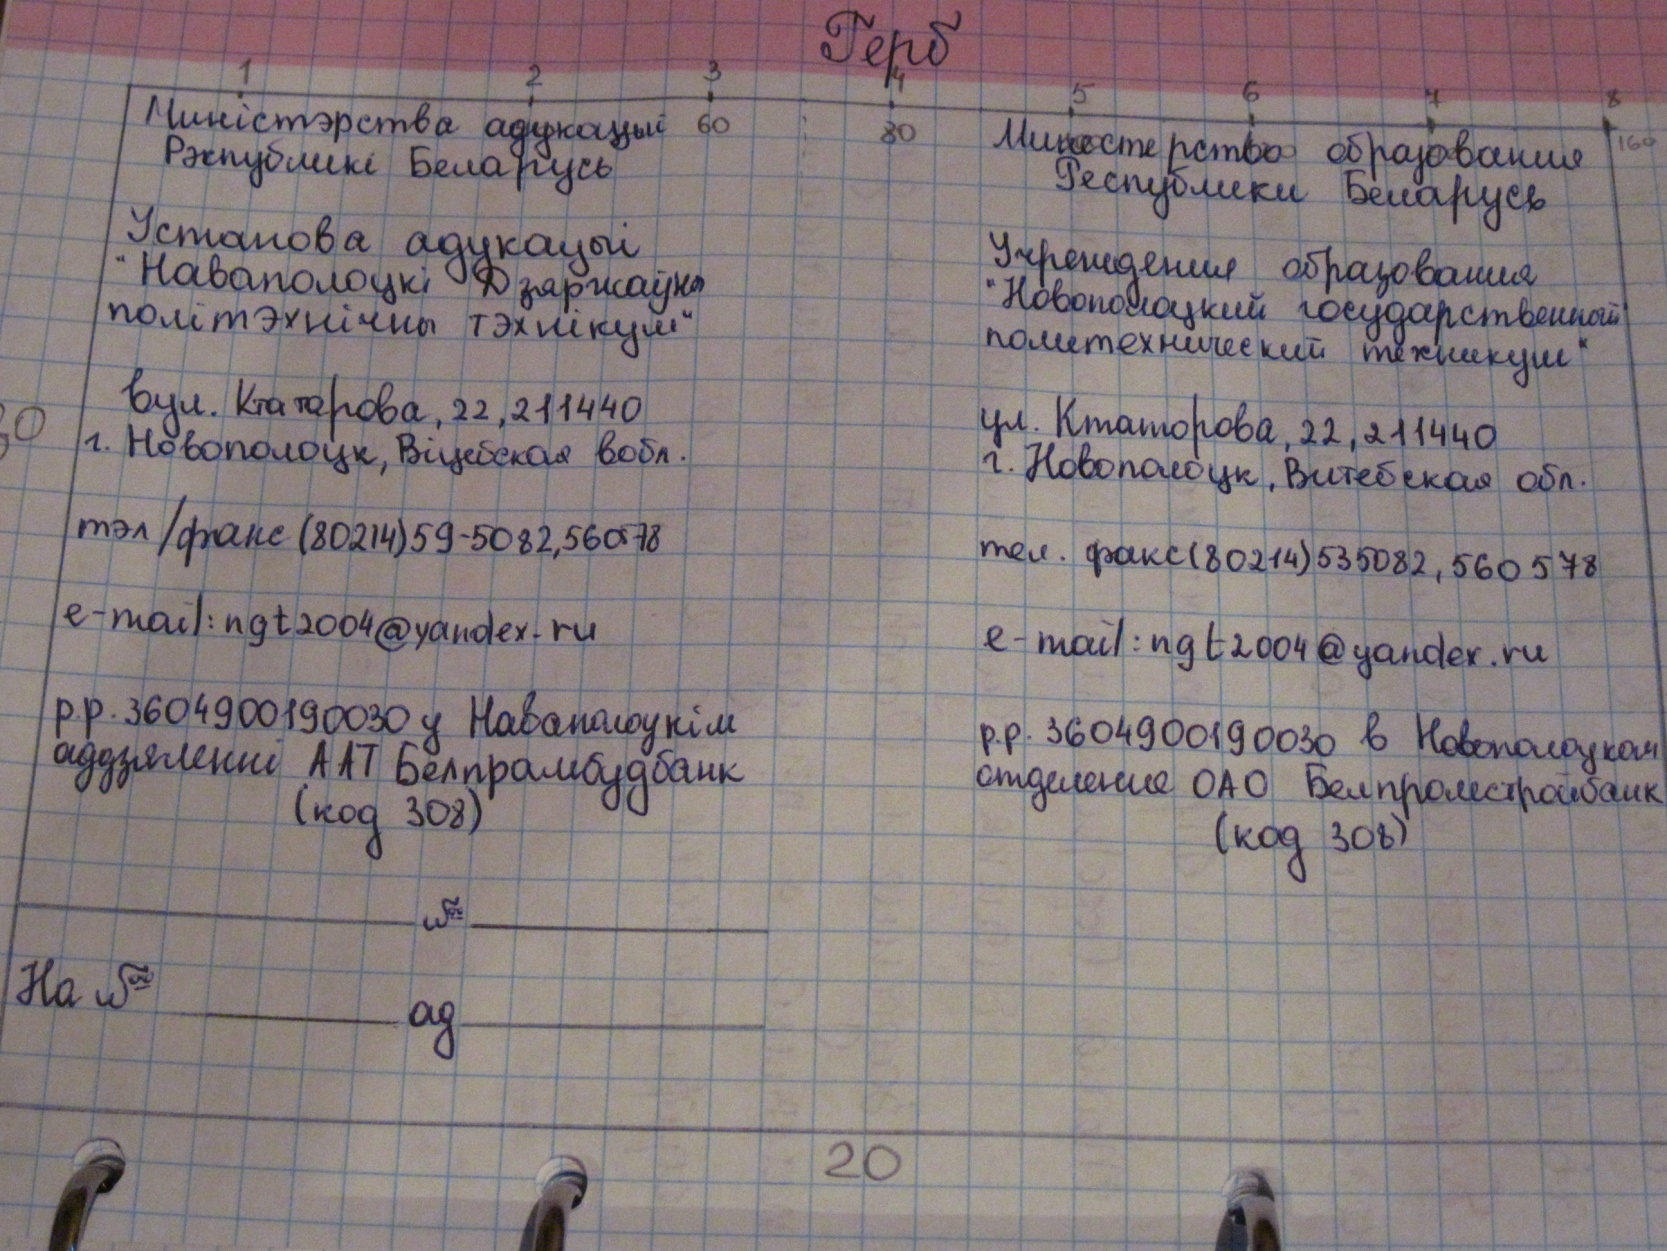 Герб
1 2 3 4 5 6 7 8
60 80 160
Міністэрства адукацыі
Рэспублікі Беларусь
Установа адукацыі
"Наваполоцкі Дзяржаўны
політэхнічны тэхнікум"
вул. Ктатарова, 22, 211440
г. Новополоцк, Віцебская вобл.
тэл/факс (80214)59-5082,560578
e-mail: ngt2004@yandex.ru
р.р. 3604900190030 у Наваполоцкім
аддзяленні ААТ Белпрамбудбанк
(код 308)
№
На № ад
Министерство образования
Республики Беларусь
Учреждения образования
"Новополоцкий государственный
политехнический техникум"
ул. Ктаторова, 22, 211440
г. Новополоцк, Витебская обл.
тел. факс(80214)535082, 560578
e-mail: ngt2004@yandex.ru
р.р. 3604900190030 в Новополоцком
отделение ОАО Белпромстройбанк
(код 308)
20